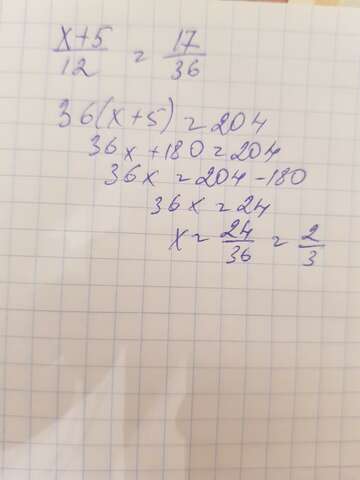 x+5/12 = 17/36
36(x+5) = 204
36x + 180 = 204
36x = 204 - 180
36x = 24
x = 24/36 = 2/3